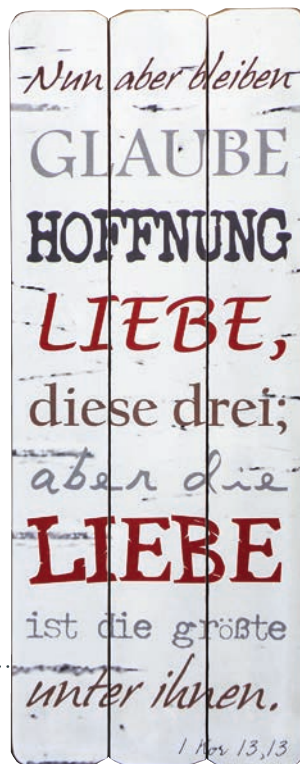 Nun aber bleiben
GLAUBE
HOFFNUNG
LIEBE,
diese drei;
aber die
LIEBE
ist die größte
unter ihnen.
1 Kor 13,13